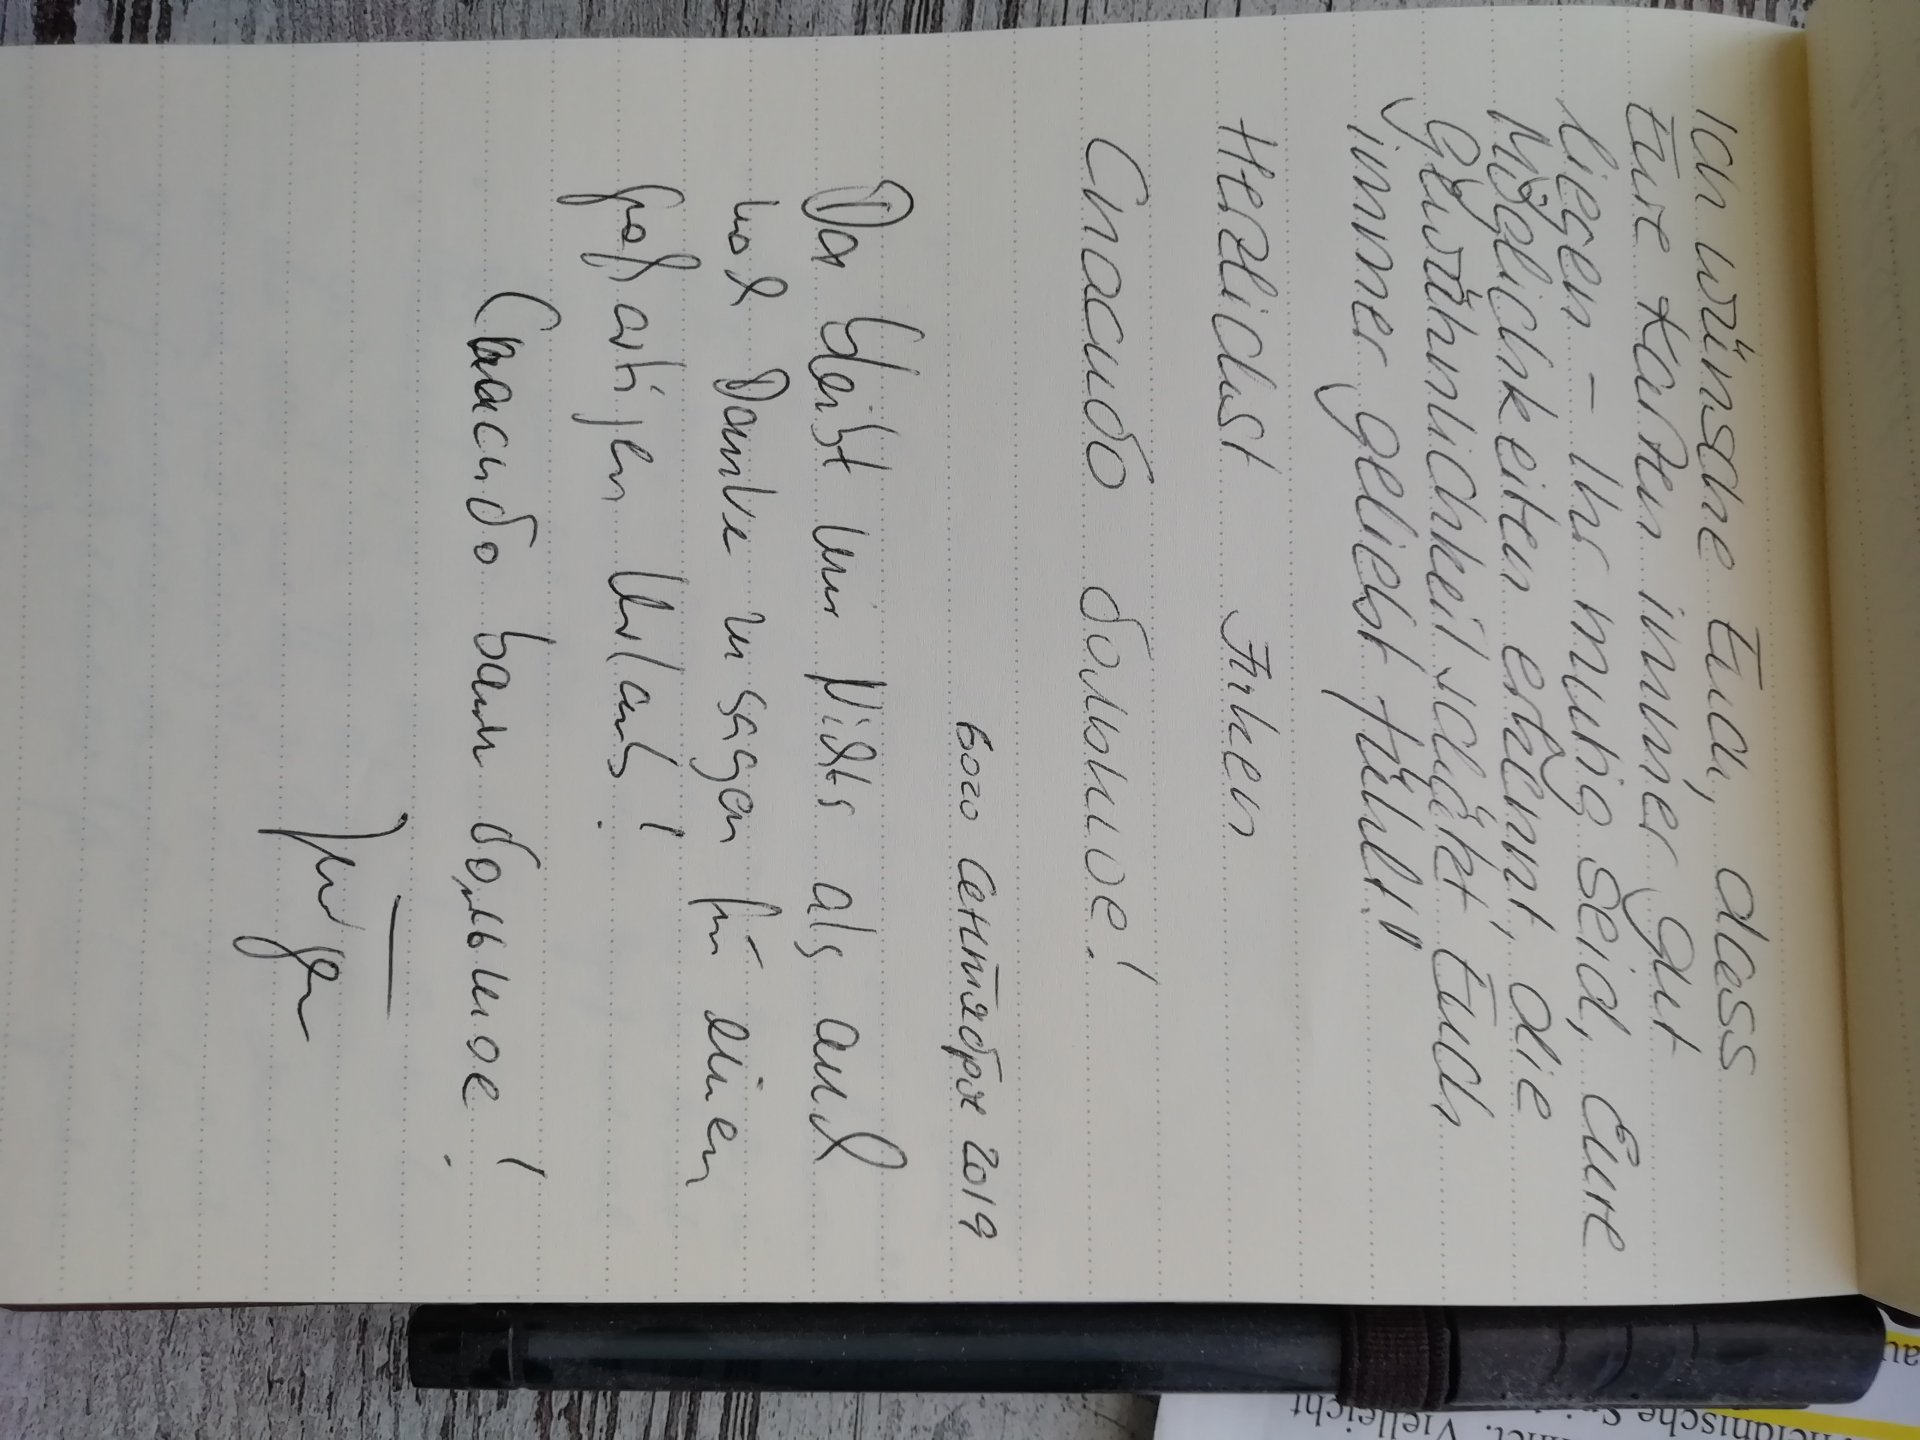 Ich wünsche Euch, dass
Eure Karten immer gut
liegen – Ihr mutig seid, Eure
Möglichkeiten erkennt, die
Gewöhnlichkeit schätzt Euch
immer geliebt fühlt!
Herzlichst
Спасибо большое!
6ого Сентября 2019
Da bleibt mir Nichts als auch
noch Danke zu sagen für einen
großartigen Urlaub!
Спасибо вам большое!
Jürgen
Vielleicht